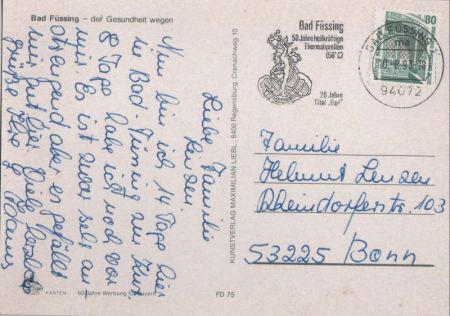 Bad Füssing – der Gesundheit wegen
Liebe Familie
Lenzen.
Nun bin ich 14 Tage hier
in Bad-Füssing zur Kur
8 Tage habe ich noch vor
mir. Es ist zwar sehr an
strengend aber es gefällt
mir gut hier. Viele
Grüße Ihre
KARTEN 60 Jahre Werbung für Bayern
FD 75
KUNSTVERLAG MAXIMILIAN LIEBL, 8400 Regensburg, Cranachweg 10
Bad Füssing
50 Jahre heilkräftige
Thermalquellen
(56°C)
20 Jahre
Titel „Bad"
BAD FÜSSING 1
94072
80
Familie
Helmut Lenzen
Rheindorferstr. 103
53225 Bonn